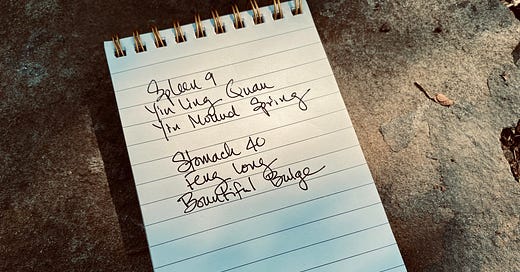 Spleen 9
Yin Ling Quan
Yin Mound Spring
Stomach 40
Feng Long
Bountiful Bulge